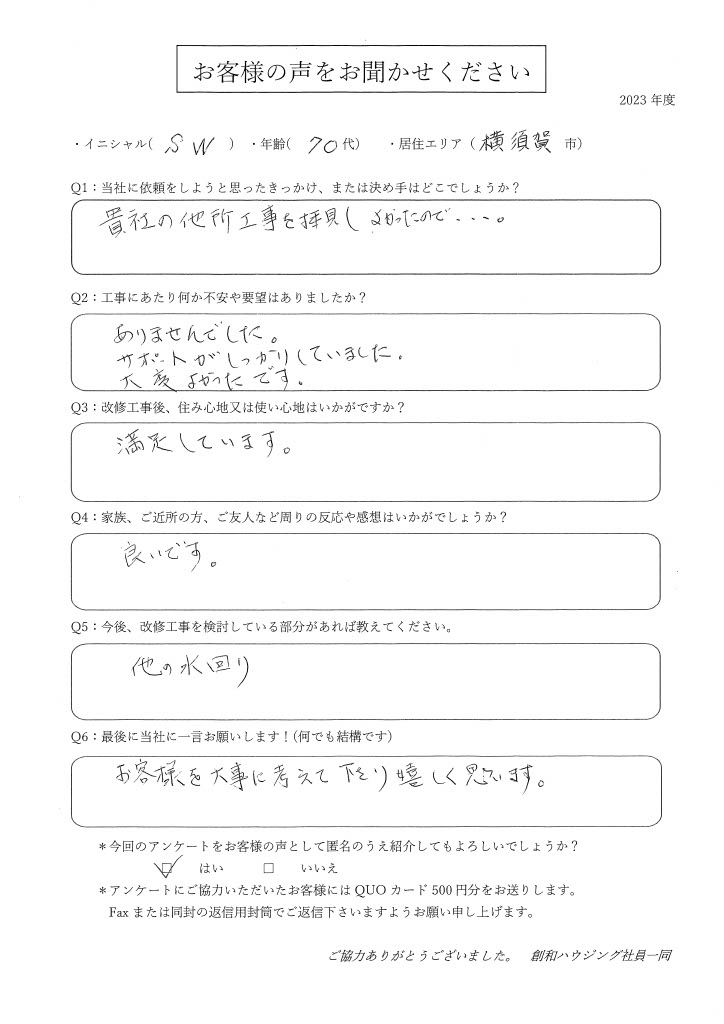 お客様の声をお聞かせください
2023 年度
・イニシャル( SW ) ・年齢( 70 代) ・居住エリア ( 横須賀 市)
Q1：当社に依頼をしようと思ったきっかけ、または決め手はどこでしょうか？
貴社の他所工事を拝見し よかったので・・・。
Q2：工事にあたり何か不安や要望はありましたか？
ありませんでした。
サポートがしっかりしていました。
大変よかったです。
Q3：改修工事後、住み心地又は使い心地はいかがですか？
満足しています。
Q4：家族、ご近所の方、ご友人など周りの反応や感想はいかがでしょうか？
良いです。
Q5：今後、改修工事を検討している部分があれば教えてください。
他の水回り
Q6：最後に当社に一言お願いします！(何でも結構です)
お客様を大事に考えて下さり嬉しく思います。
＊今回のアンケートをお客様の声として匿名のうえ紹介してもよろしいでしょうか？
☑ はい □ いいえ
＊アンケートにご協力いただいたお客様には QUO カード 500 円分をお送りします。
Fax または同封の返信用封筒でご返信下さいますようお願い申し上げます。
ご協力ありがとうございました。 創和ハウジング社員一同